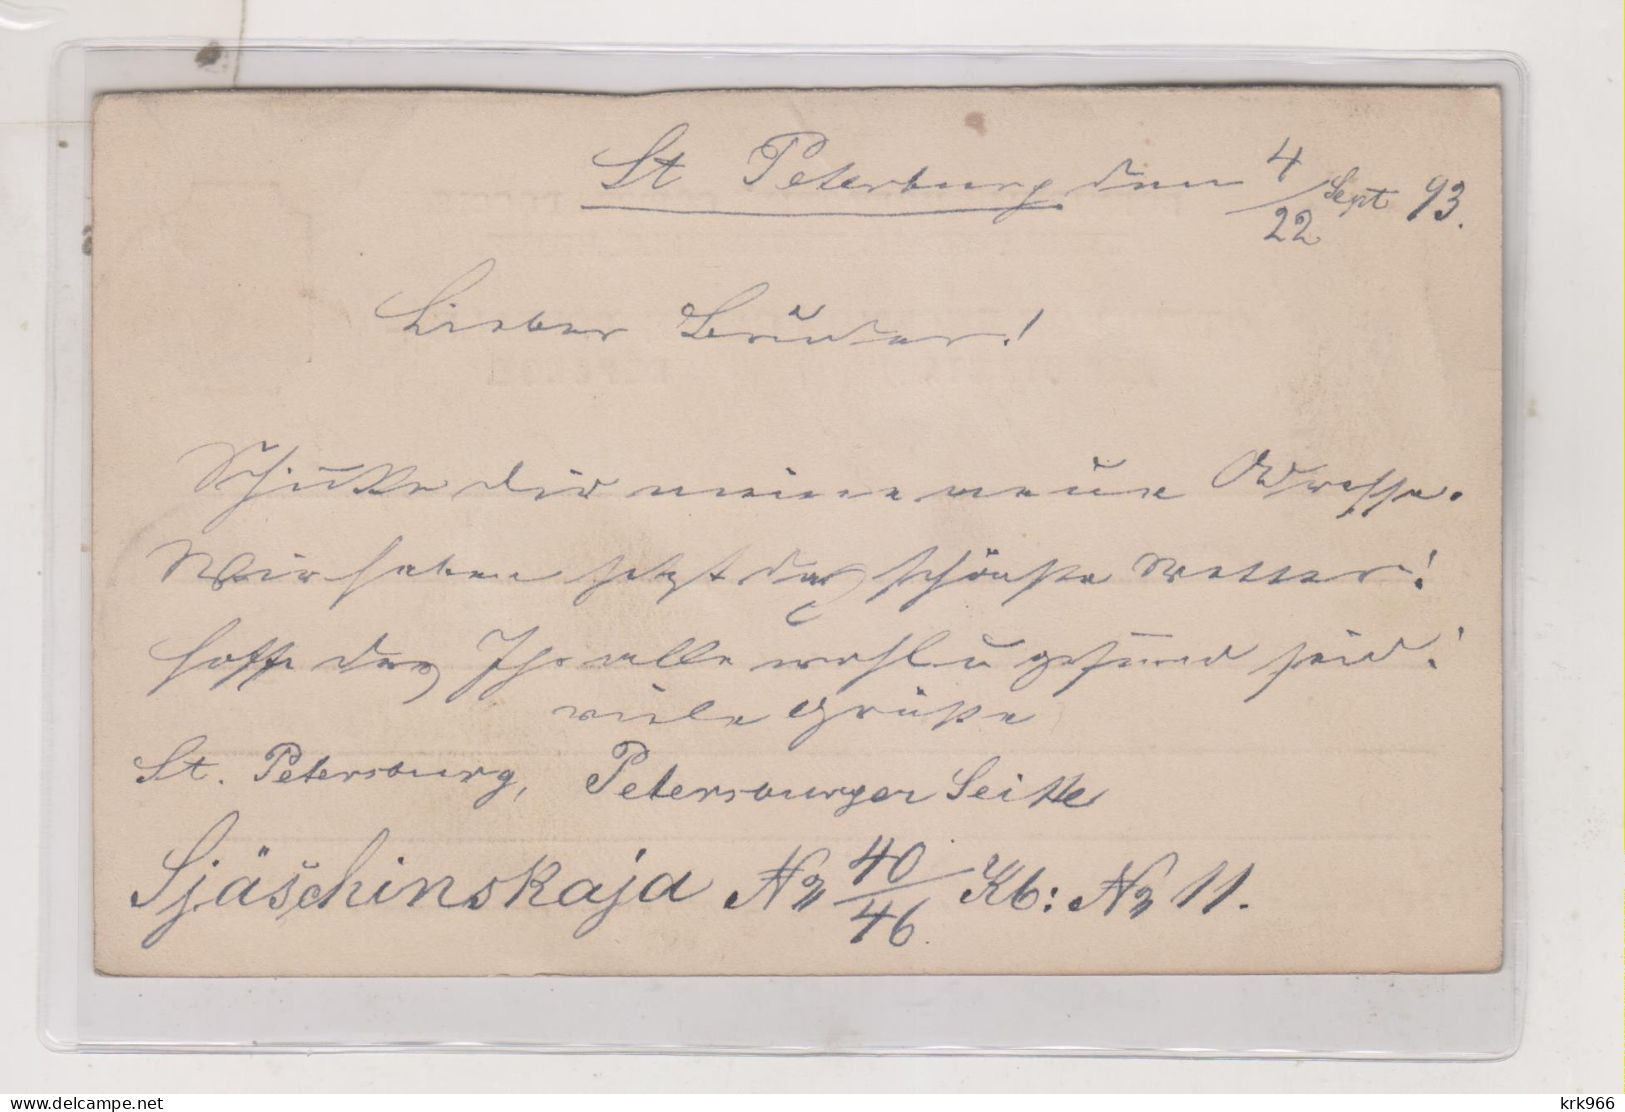 St Petersburg den 4/22 Sept 93.
Lieber Bruder!
Schicke dir meine neue Adresse.
Wir haben jetzt das schönste Wetter!
hoffe das Ihr alle wohl u gesund seid!
viele Grüße
St. Petersburg, Petersburger Seite
Sjäščhinskaja № 40/46 Kb: № 11.
www.delcampe.net
krk966